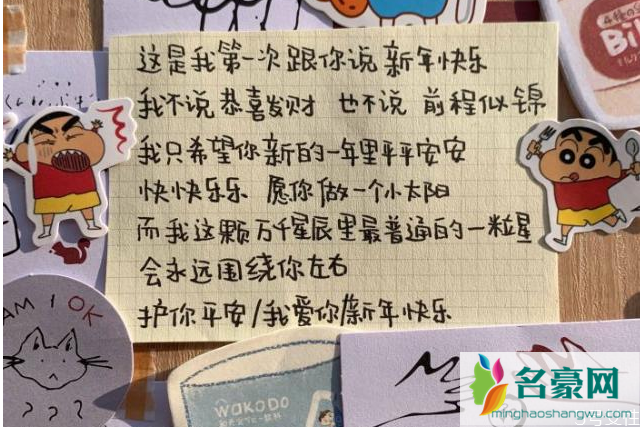 这是我第一次跟你说 新年快乐
我不说 恭喜发财 也不说 前程似锦
我只希望你新的一年里平平安安
快快乐乐 愿你做一个小太阳
而我这颗万千星辰里最普通的一粒星
会永远围绕你左右
护你平安/我爱你/新年快乐
AM I OK
???
WaKODO
名豪网
minghaoshangwu.com